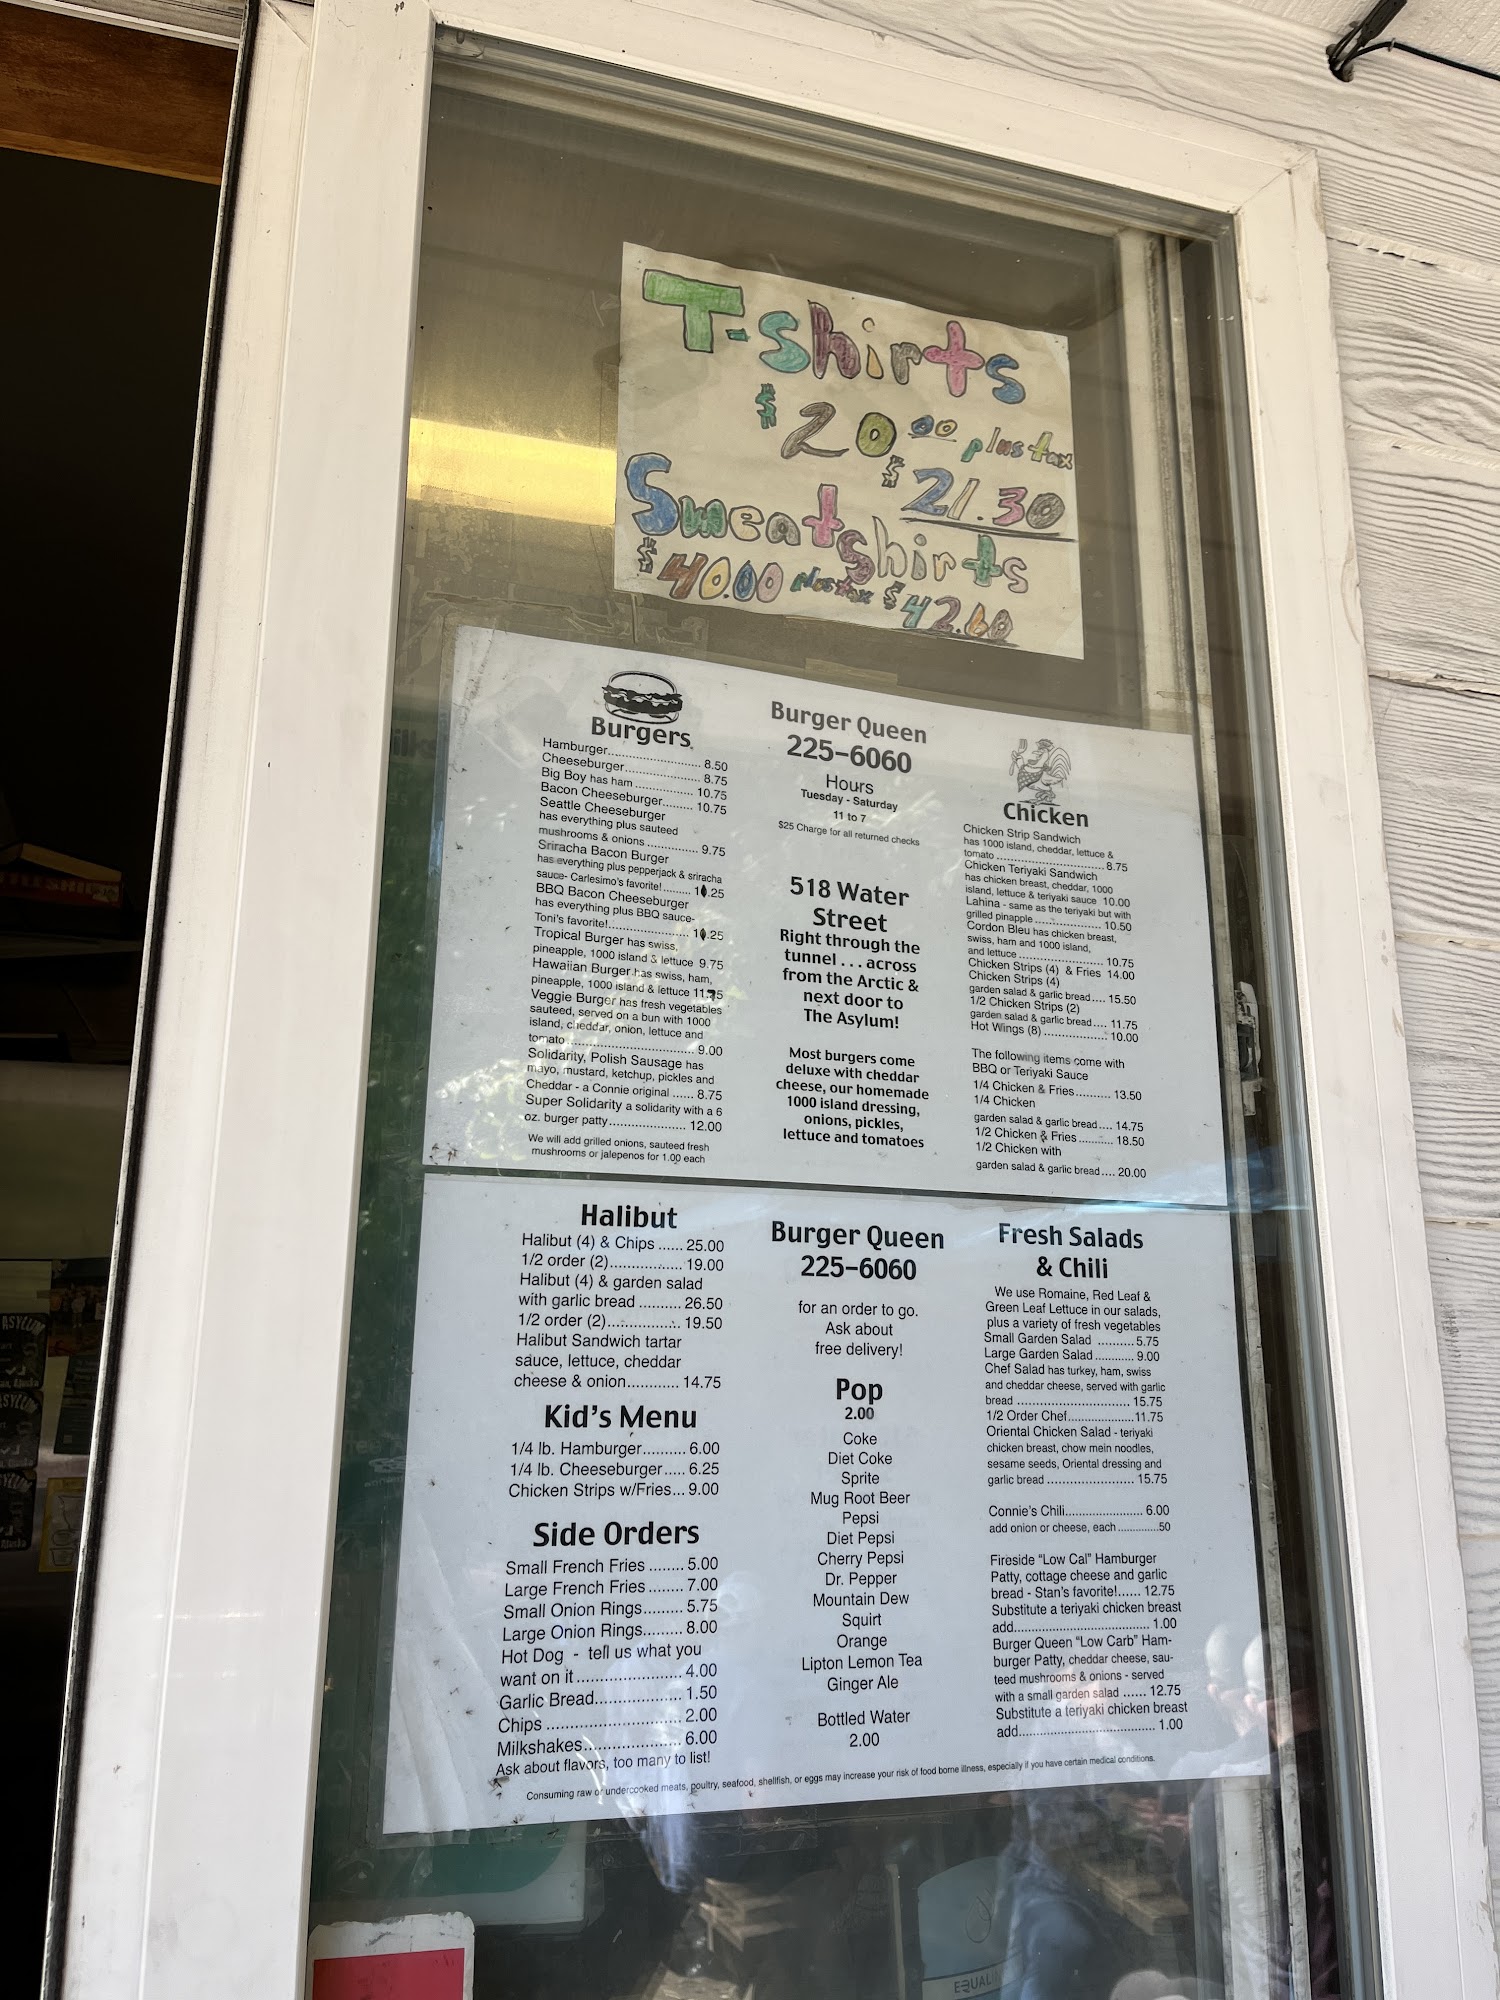 T-shirts
$20.00 plus tax
$21.30
Sweatshirts
$40.00 plus tax $42.60
Burgers
Hamburger............................ 8.50
Cheeseburger....................... 8.75
Big Boy has ham .................. 10.75
Bacon Cheeseburger......... 10.75
Seattle Cheeseburger
has everything plus sauteed
mushrooms & onions ............... 9.75
Sriracha Bacon Burger
has everything plus pepperjack & sriracha
sauce- Carlesimo's favorite!......... .25
BBQ Bacon Cheeseburger
has everything plus BBQ sauce-
Toni's favorite!......................... .25
Tropical Burger has swiss,
pineapple, 1000 island & lettuce 9.75
Hawaiian Burger has swiss, ham,
pineapple, 1000 island & lettuce 11.75
Veggie Burger has fresh vegetables
sauteed, served on a bun with 1000
island, cheddar, onion, lettuce and
tomato ...................................... 9.00
Solidarity, Polish Sausage has
mayo, mustard, ketchup, pickles and
Cheddar - a Connie original ...... 8.75
Super Solidarity a solidarity with a 6
oz. burger patty....................... 12.00
We will add grilled onions, sauteed fresh
mushrooms or jalepenos for 1.00 each
Burger Queen
225-6060
Hours
Tuesday - Saturday
11 to 7
$25 Charge for all returned checks
518 Water
Street
Right through the
tunnel . . . across
from the Arctic &
next door to
The Asylum!
Most burgers come
deluxe with cheddar
cheese, our homemade
1000 island dressing,
onions, pickles,
lettuce and tomatoes
Chicken
Chicken Strip Sandwich
has 1000 island, cheddar, lettuce &
tomato ................................. 8.75
Chicken Teriyaki Sandwich
has chicken breast, cheddar, 1000
island, lettuce & teriyaki sauce 10.00
Lahina - same as the teriyaki but with
grilled pinapple .................... 10.50
Cordon Bleu has chicken breast,
swiss, ham and 1000 island,
and lettuce .......................... 10.75
Chicken Strips (4) & Fries 14.00
Chicken Strips (4)
garden salad & garlic bread.... 15.50
1/2 Chicken Strips (2)
garden salad & garlic bread.... 11.75
Hot Wings (8) ................... 10.00
The following items come with
BBQ or Teriyaki Sauce
1/4 Chicken & Fries.......... 13.50
1/4 Chicken
garden salad & garlic bread.... 14.75
1/2 Chicken & Fries .......... 18.50
1/2 Chicken with
garden salad & garlic bread.... 20.00
Halibut
Halibut (4) & Chips ...... 25.00
1/2 order (2)................. 19.00
Halibut (4) & garden salad
with garlic bread .......... 26.50
1/2 order (2)................. 19.50
Halibut Sandwich tartar
sauce, lettuce, cheddar
cheese & onion............ 14.75
Kid's Menu
1/4 lb. Hamburger.......... 6.00
1/4 lb. Cheeseburger..... 6.25
Chicken Strips w/Fries... 9.00
Side Orders
Small French Fries ........ 5.00
Large French Fries ........ 7.00
Small Onion Rings......... 5.75
Large Onion Rings......... 8.00
Hot Dog - tell us what you
want on it ....................... 4.00
Garlic Bread................... 1.50
Chips ............................. 2.00
Milkshakes..................... 6.00
Ask about flavors, too many to list!
Burger Queen
225-6060
for an order to go.
Ask about
free delivery!
Pop
2.00
Coke
Diet Coke
Sprite
Mug Root Beer
Pepsi
Diet Pepsi
Cherry Pepsi
Dr. Pepper
Mountain Dew
Squirt
Orange
Lipton Lemon Tea
Ginger Ale
Bottled Water
2.00
Fresh Salads
& Chili
We use Romaine, Red Leaf &
Green Leaf Lettuce in our salads,
plus a variety of fresh vegetables
Small Garden Salad .......... 5.75
Large Garden Salad ........... 9.00
Chef Salad has turkey, ham, swiss
and cheddar cheese, served with garlic
bread .............................. 15.75
1/2 Order Chef.................. 11.75
Oriental Chicken Salad - teriyaki
chicken breast, chow mein noodles,
sesame seeds, Oriental dressing and
garlic bread ....................... 15.75
Connie's Chili..................... 6.00
add onion or cheese, each .............50
Fireside "Low Cal" Hamburger
Patty, cottage cheese and garlic
bread - Stan's favorite!...... 12.75
Substitute a teriyaki chicken breast
add..................................... 1.00
Burger Queen "Low Carb" Ham-
burger Patty, cheddar cheese, sau-
teed mushrooms & onions - served
with a small garden salad ...... 12.75
Substitute a teriyaki chicken breast
add..................................... 1.00
Consuming raw or undercooked meats, poultry, seafood, shellfish, or eggs may increase your risk of food borne illness, especially if you have certain medical conditions.